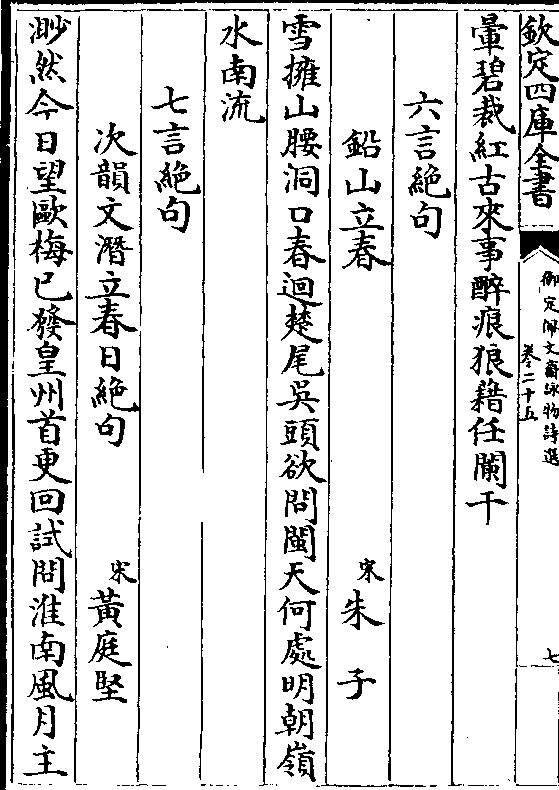 欽定四庫全書
御定佩文齋詠物詩選
卷二十五
七
暈碧裁紅古來事醉痕狼籍任闌干
六言絶句
鉛山立春 宋 朱子
雪擁山腰洞口春迴楚尾吳頭欲問閩天何處明朝嶺
水南流
七言絶句
次韻文潛立春日絶句 宋 黃庭堅
渺然今日望歐梅已發皇州首更回試問淮南風月主